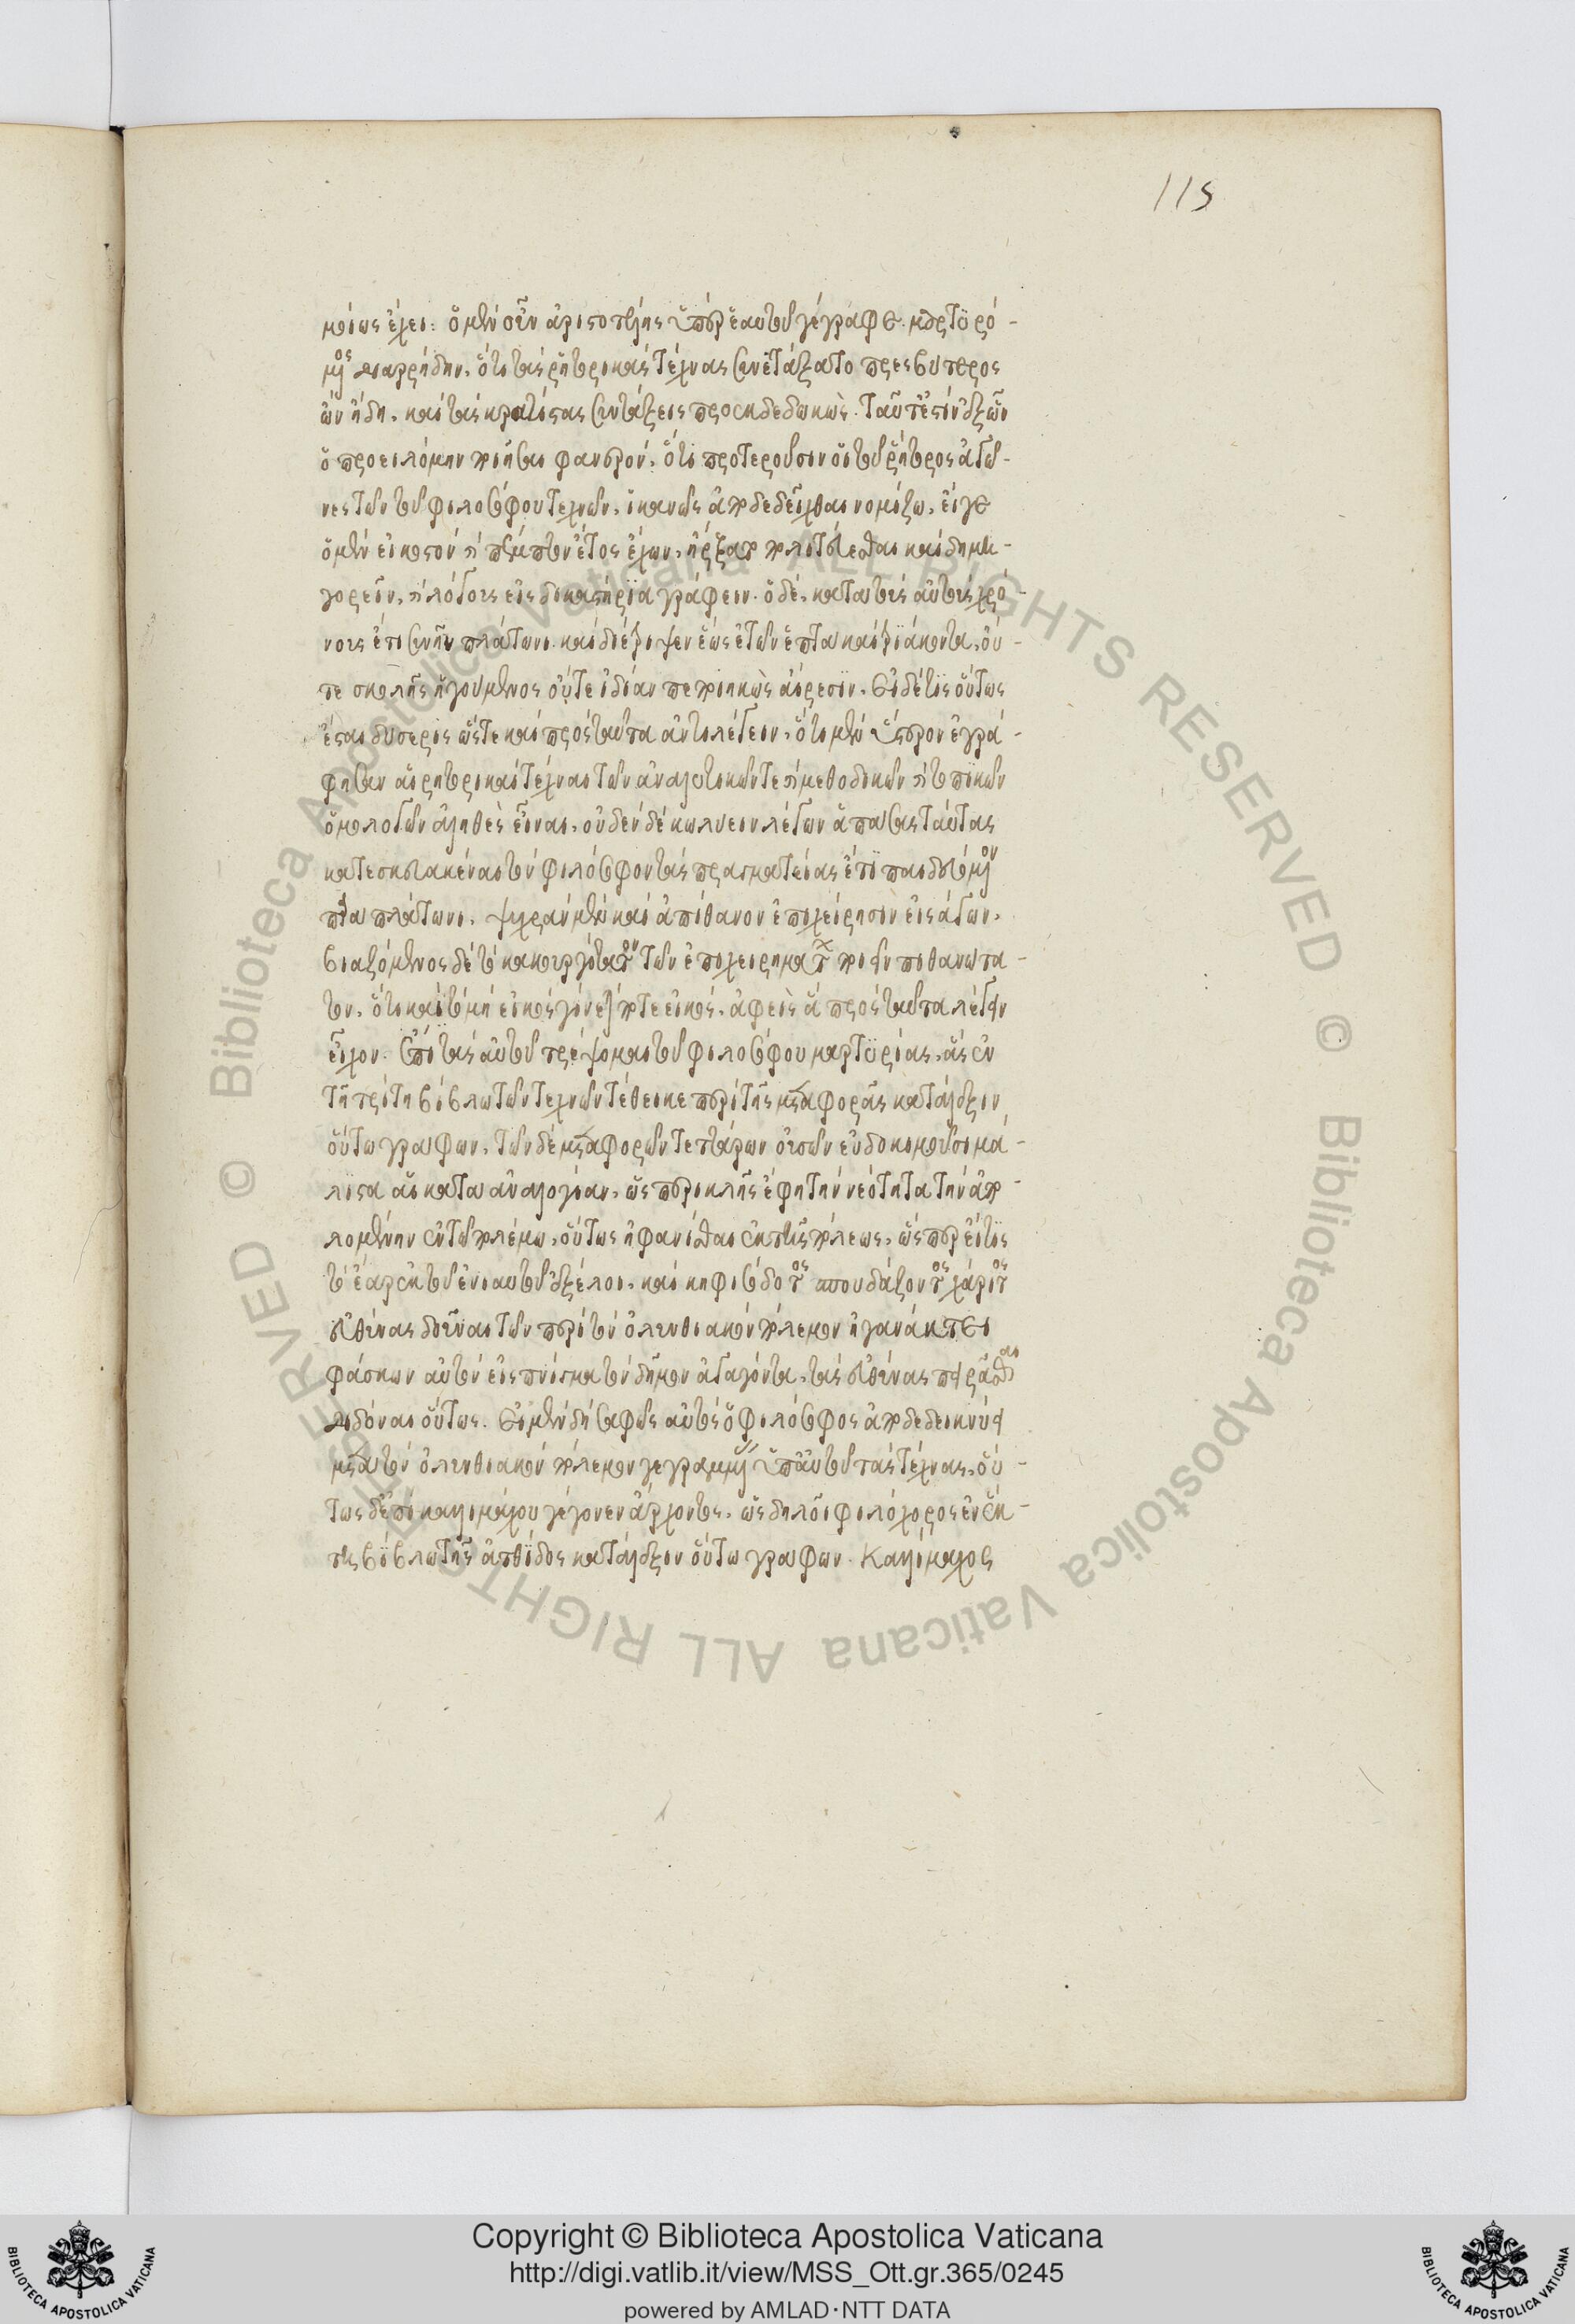 115
μοίως ἔχει: ὁ μὲν οὖν ἀριστοτέλης ὑπὲρ ἑαυτοῦ γέγραφε. μαρτυρό-
μενος διαρρήδην, ὅτι τὰς ῥητορικὰς τέχνας συνετάξατο πρεσβύτερος
ὢν ἤδη, καὶ τὰς κρατίστας συντάξεις προεκδεδωκώς. ταῦτ' ἐστὶν ἐξ ὧν
ὃ προειλόμην ποιῆσαι φανερὸν, ὅτι προτεροῦσιν οἱ τοῦ ῥήτορος ἀγῶ-
νες τῶν τοῦ φιλοσόφου τεχνῶν, ἱκανῶς ἀποδεδεῖχθαι νομίζω, εἴγε
ὁ μὲν εἰκοστὸν καὶ πέμπτον ἔτος ἔχων, ἤρξατο πολιτεύεσθαι καὶ δημη-
γορεῖν, καὶ λόγους εἰς δικαστήρια γράφειν. ὁ δὲ, κατὰ τοὺς αὐτοὺς χρό
νους ἔτι συνῆν πλάτωνι. καὶ διέτριψεν ἕως ἐτῶν ἑπτὰ καὶ τριάκοντα, οὔ-
τε σχολῆς ἡγούμενος οὔτε ἰδίαν πεποιηκὼς αἵρεσιν. εἰ δέ τις οὕτως
ἔσται δύσερις ὥστε καὶ πρὸς ταῦτα ἀντιλέγειν, ὅτι μὲν ὕστερον ἐγρά-
φησαν αἱ ῥητορικαὶ τέχναι τῶν ἀναλυτικῶν τε καὶ μεθοδικῶν καὶ τοπικῶν
ὁμολογῶν ἀληθὲς εἶναι, οὐδὲν δὲ κωλύειν λέγων ἁπάσας ταύτας
κατεσκευακέναι τὸν φιλόσοφον τὰς πραγματείας ἔτι παιδευόμενον
παρὰ πλάτωνι, ψυχρὰν μὲν καὶ ἀπίθανον ἐπιχείρησιν εἰσάγων,
βιαζόμενος δὲ τὸ κακουργότατον τῶν ἐπιχειρημάτων ποιεῖν πιθανώτα-
τον, ὅτι καὶ τὸ μὴ εἰκὸς γίνεταί ποτε εἰκὸς, ἀφεὶς ἃ πρὸς ταῦτα λέγειν
εἶχον. ἐπὶ τὰς αὐτοῦ τρέψομαι τοῦ φιλοσόφου μαρτυρίας, ἃς ἐν
τῇ τρίτῃ βίβλῳ τῶν τεχνῶν τέθεικε περὶ τῆς μεταφορᾶς κατὰ λέξιν
οὕτω γράφων, τῶν δὲ μεταφορῶν τεττάρων οὐσῶν εὐδοκιμοῦσι μά-
λιστα αἱ κατὰ ἀναλογίαν, ὡς περικλῆς ἔφη τὴν νεότητα τὴν ἀπο-
λομένην ἐν τῷ πολέμῳ, οὕτως ἠφανίσθαι ἐκ τῆς πόλεως, ὥσπερ εἴ τις
τὸ ἔαρ ἐκ τοῦ ἐνιαυτοῦ ἐξέλοι. καὶ κηφισόδοτος σπουδάζοντος χάριτος
εὐθύνας δοῦναι τῶν περὶ τὸν ὀλυνθιακὸν πόλεμον ἠγανάκτει
φάσκων αὐτὸν εἰς πνίγμα τὸν δῆμον ἀγαγόντα, τὰς εὐθύνας πειρᾶσθαι
διδόναι οὕτως. εἰ μὲν δὴ σαφῶς αὐτὸς ὁ φιλόσοφος ἀποδεδεικνύει
μετὰ τὸν ὀλυνθιακὸν πόλεμον γεγραμμένας ὑπ' αὐτοῦ τὰς τέχνας, οὕ-
τως δ' ἐπὶ καλλιμάχου γέγονεν ἄρχοντος, ὡς δηλοῖ φιλόχορος ἐν ἕκ-
τῃ βίβλῳ τῆς ἀτθίδος κατὰ λέξιν οὕτω γράφων. καλλίμαχος
Copyright © Biblioteca Apostolica Vaticana
http://digi.vatlib.it/view/MSS_Ott.gr.365/0245
powered by AMLAD·NTT DATA